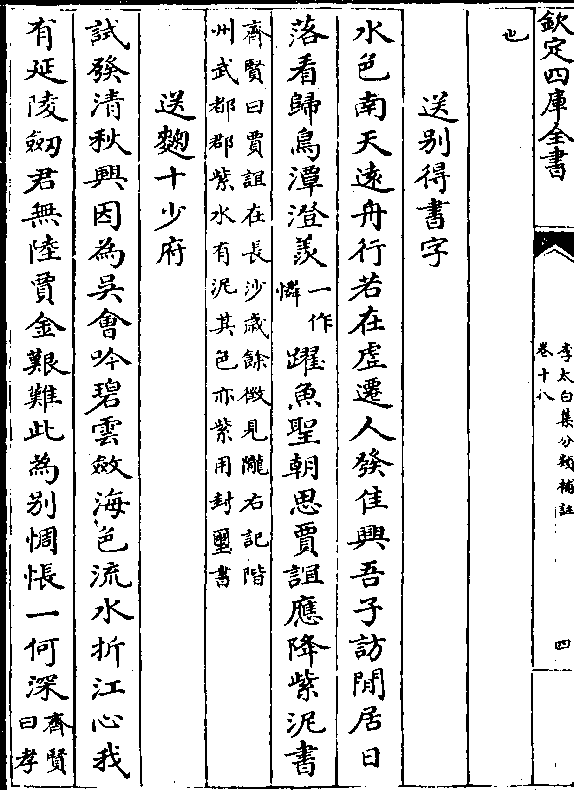 欽定四庫全書
李太白集分類補註
卷十八
四
也
送別得書字
水色南天遠舟行若在虛遷人發佳興吾子訪閒居日
落看歸鳥潭澄羨一作憐躍魚聖朝思賈誼應降紫泥書
齊賢曰賈誼在長沙歳餘徴見隴右記階
州武都郡紫水有泥其色亦紫用封璽書
送麴十少府
試發清秋興因為吳會吟碧雲斂海色流水折江心我
有延陵劒君無陸賈金艱難此為別惆悵一何深齊賢曰孝